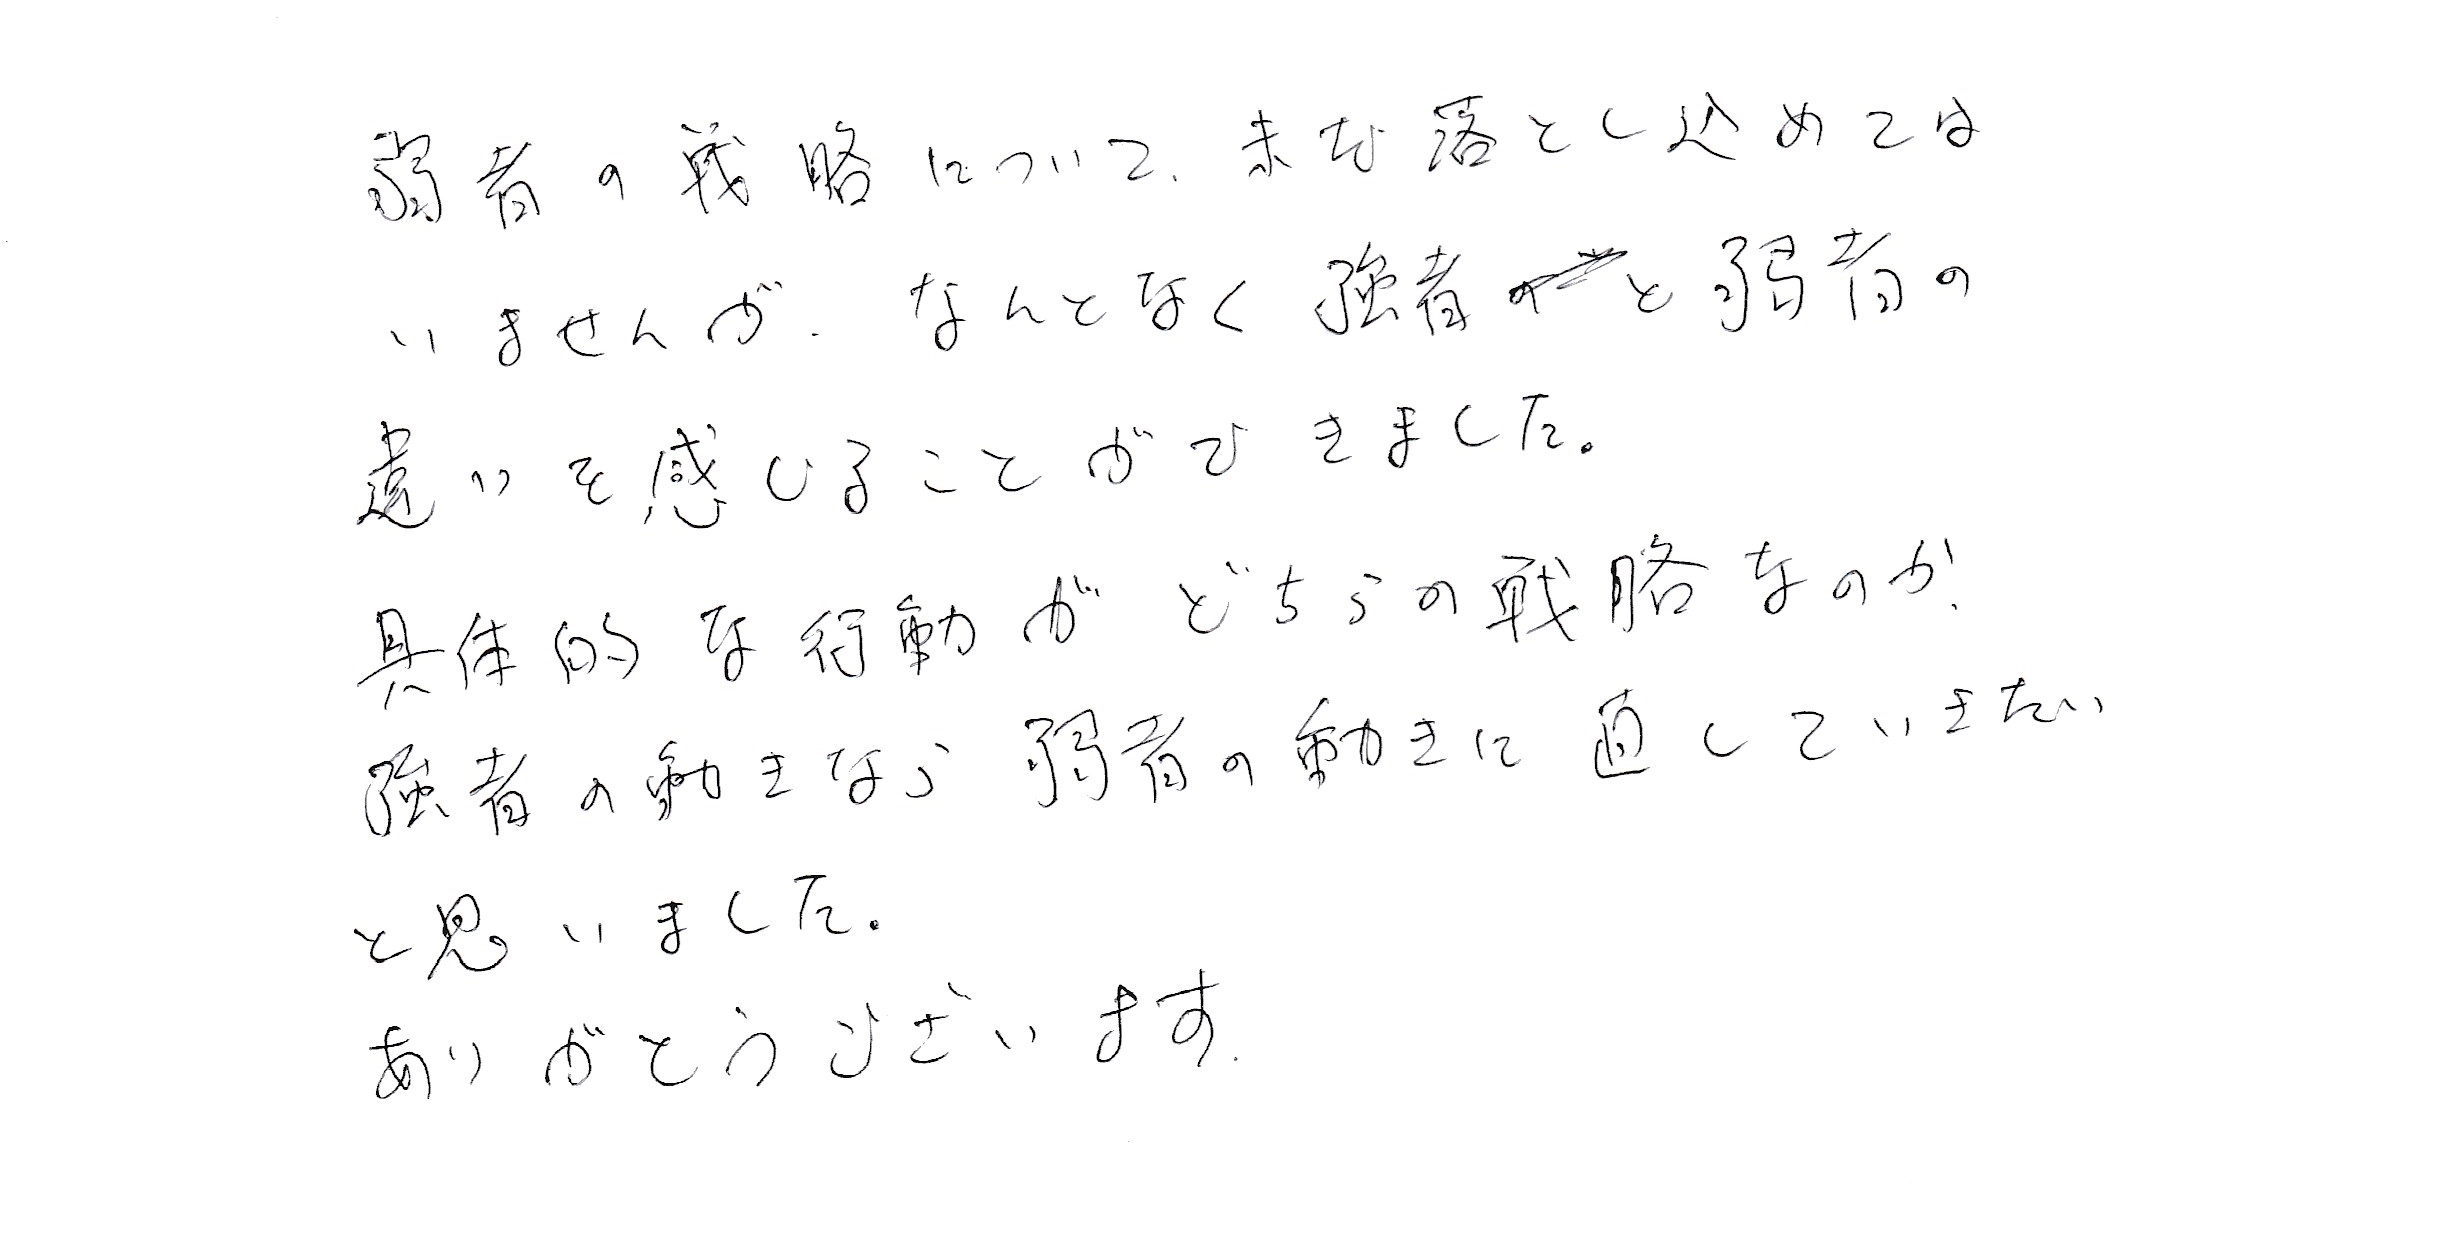 弱者の戦略について、未だ落とし込めては
いませんが、なんとなく強者と弱者の
違いを感じることができました。
具体的な行動がどちらの戦略なのか、
強者の動きなら弱者の動きに直していきたい
と思いました。
ありがとうございます。